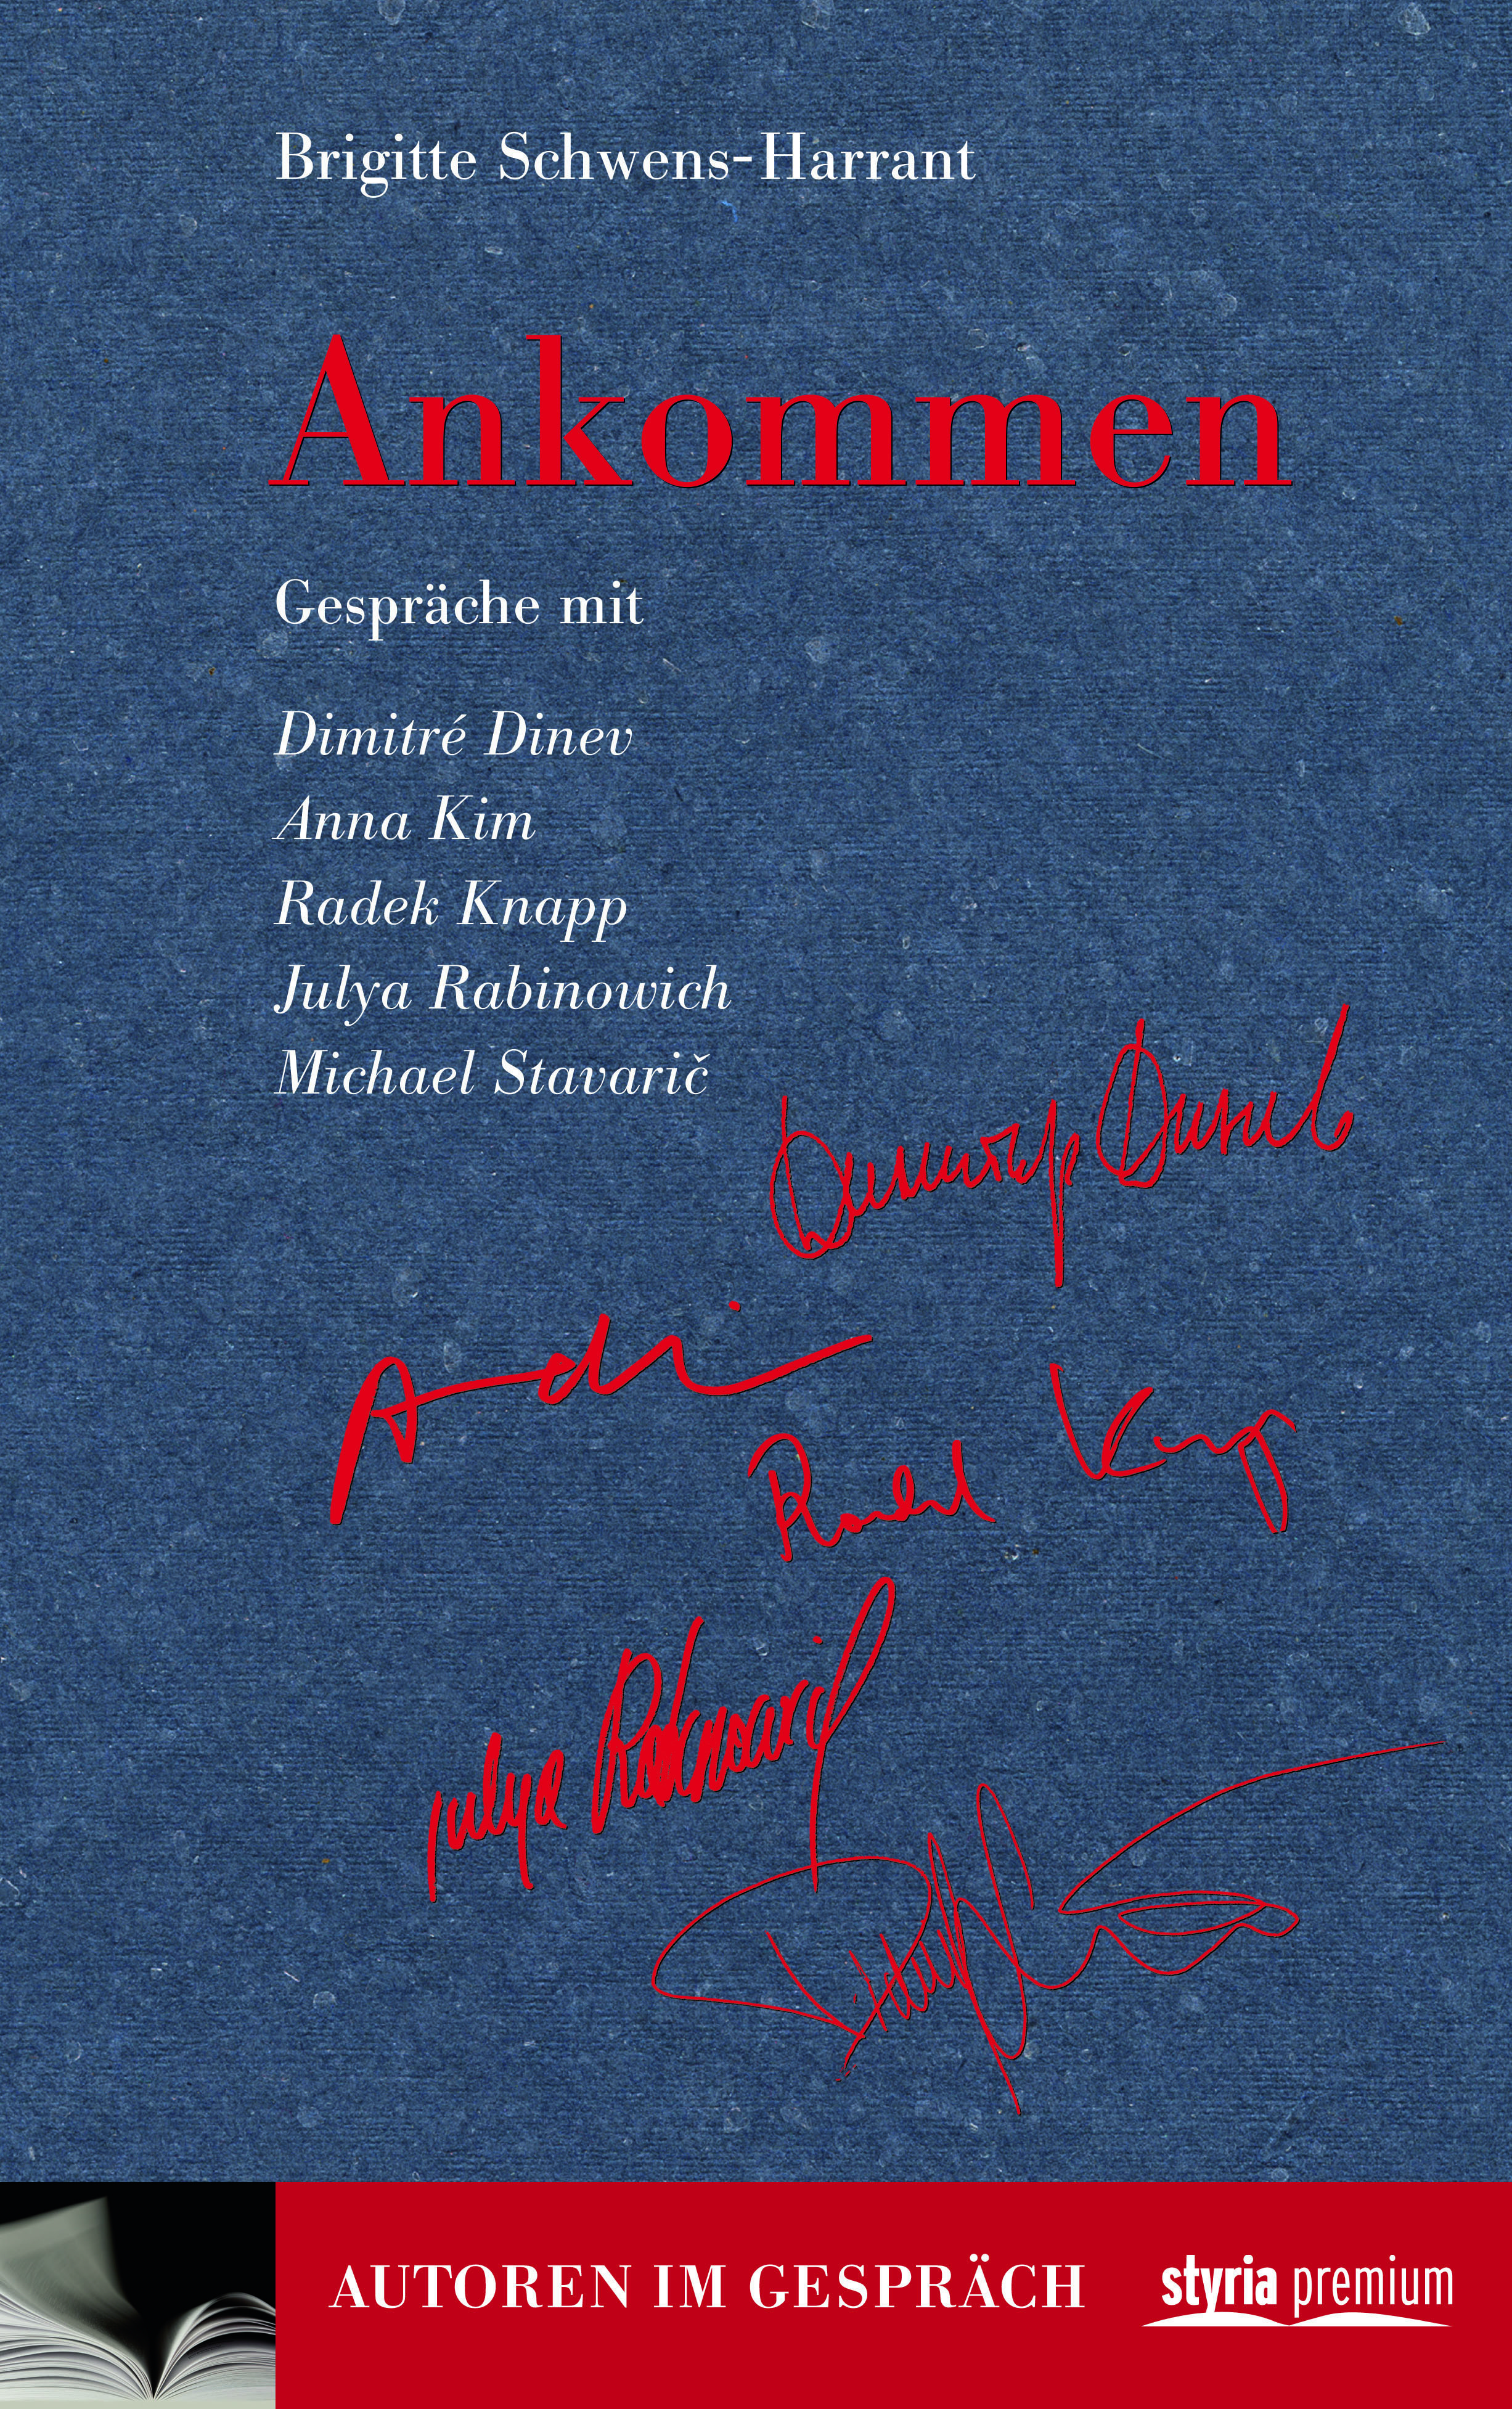 Brigitte Schwens-Harrant
Ankommen
Gespräche mit
Dimitré Dinev
Anna Kim
Radek Knapp
Julya Rabinowich
Michael Stavarič
Димитър Динев
Radek Knapp
Julya Rabinowich
AUTOREN IM GESPRÄCH
styria premium